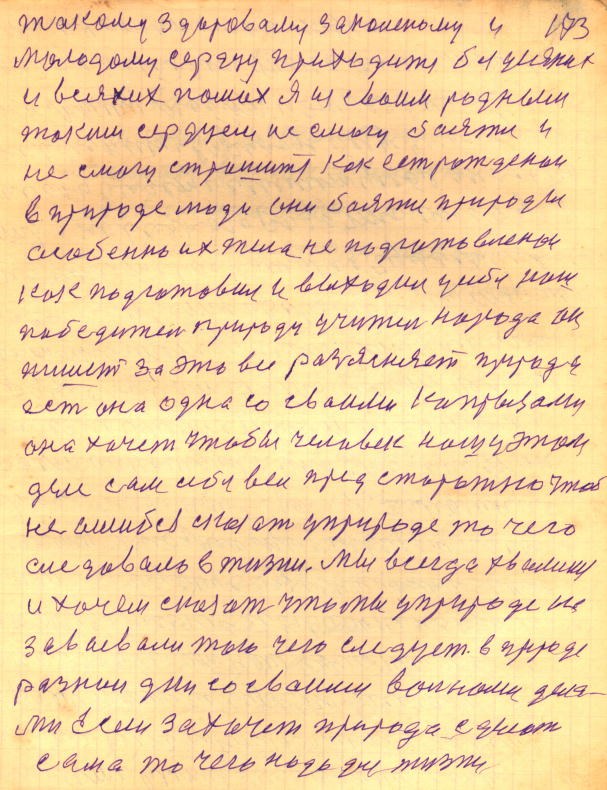 такому здороваму заколеному и 173
молодому сердцу приходит
и всяких помох Я из своим родным
таким сердцем не смогу бояти и
не смогу страшит как ест рожденои
в природе люди они бояти природы
особенно их тела не подготовленои
как подготовил и выходил у себи наш
победител природы учител народа он
пишет за это все разясняет природа
ест она одна со своими капрызами
она хочет чтобы человек
дели сам себи вел предсторожно чтоб
не ошибся сказат у природе то чего
следовало в жизни. Мы всегда хвалимы
и хочем сказат что мы у природе не
заваевали того чего следует. в природе
разнои дни со своими
ми Если захочет природа сделат
сама то чего надо дле жизни